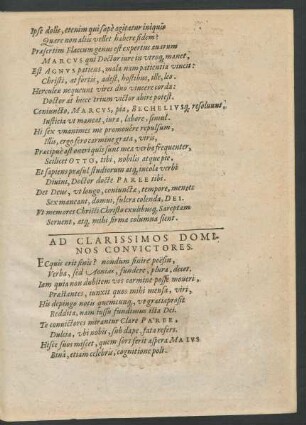 Ipse dolis, etenim qui sapit agitatur iniquis
Quare non aliis vellet habere fidem?
Præsertim Flaccum genus est expertus auarum
MARCVS qui Doctor iure in vtroq; manet,
Est AGNVS patiens, mala nam patientia vincit:
Christi, at fortis, adest, hostibus, ille, leo.
Hercules nequeunt vires duo vincere corda:
Doctor at hece trium victor abire potest.
Coniuncto, MARCVS, pia, BECHELIVSq; resoluunt,
Iustitia vt maneat, iura, labore, simul.
Hi sex vnanimes me promouêre repulsum,
Illis, ergo fero carmina grata, viris,
Præcipuè ast vestri quis sunt mea verba frequenter,
Scilicet OTTO, tibi, nobilis atque pie,
Et sapiens præsul studiorum atq; incola verbi
Diuini, Doctor docte PAREE tibi.
Det Deus, vt longo, coniunctæ, tempore, mentes
Sex maneant, domus, fulcra colenda, DEI.
Vt memores Christi Christo exutibusq; Sareptam
Seruent, atq; mihi firma columna sient.
AD CLARISSIMOS DOMI-
NOS CONVICTORES.
ECquis erit finis? nondum finire poësin,
Verba, sed Aonias, fundere, plura, decet.
Iam quia non dubitem vos carmine posse moueri,
Præstantes, iunxit quos mihi mensa, viri,
His depingo notis quemcunq; vt gratia possit
Reddita, nam iussu fundimus ista Dei.
Te conuictores mirantur Clare PAREE,
Dulcia, vbi nobis, sub dape, fata refers.
Hisce suos miscet, quem sors serit aspera MAIVS
Binâ, etiam celebris, cognitione poli.